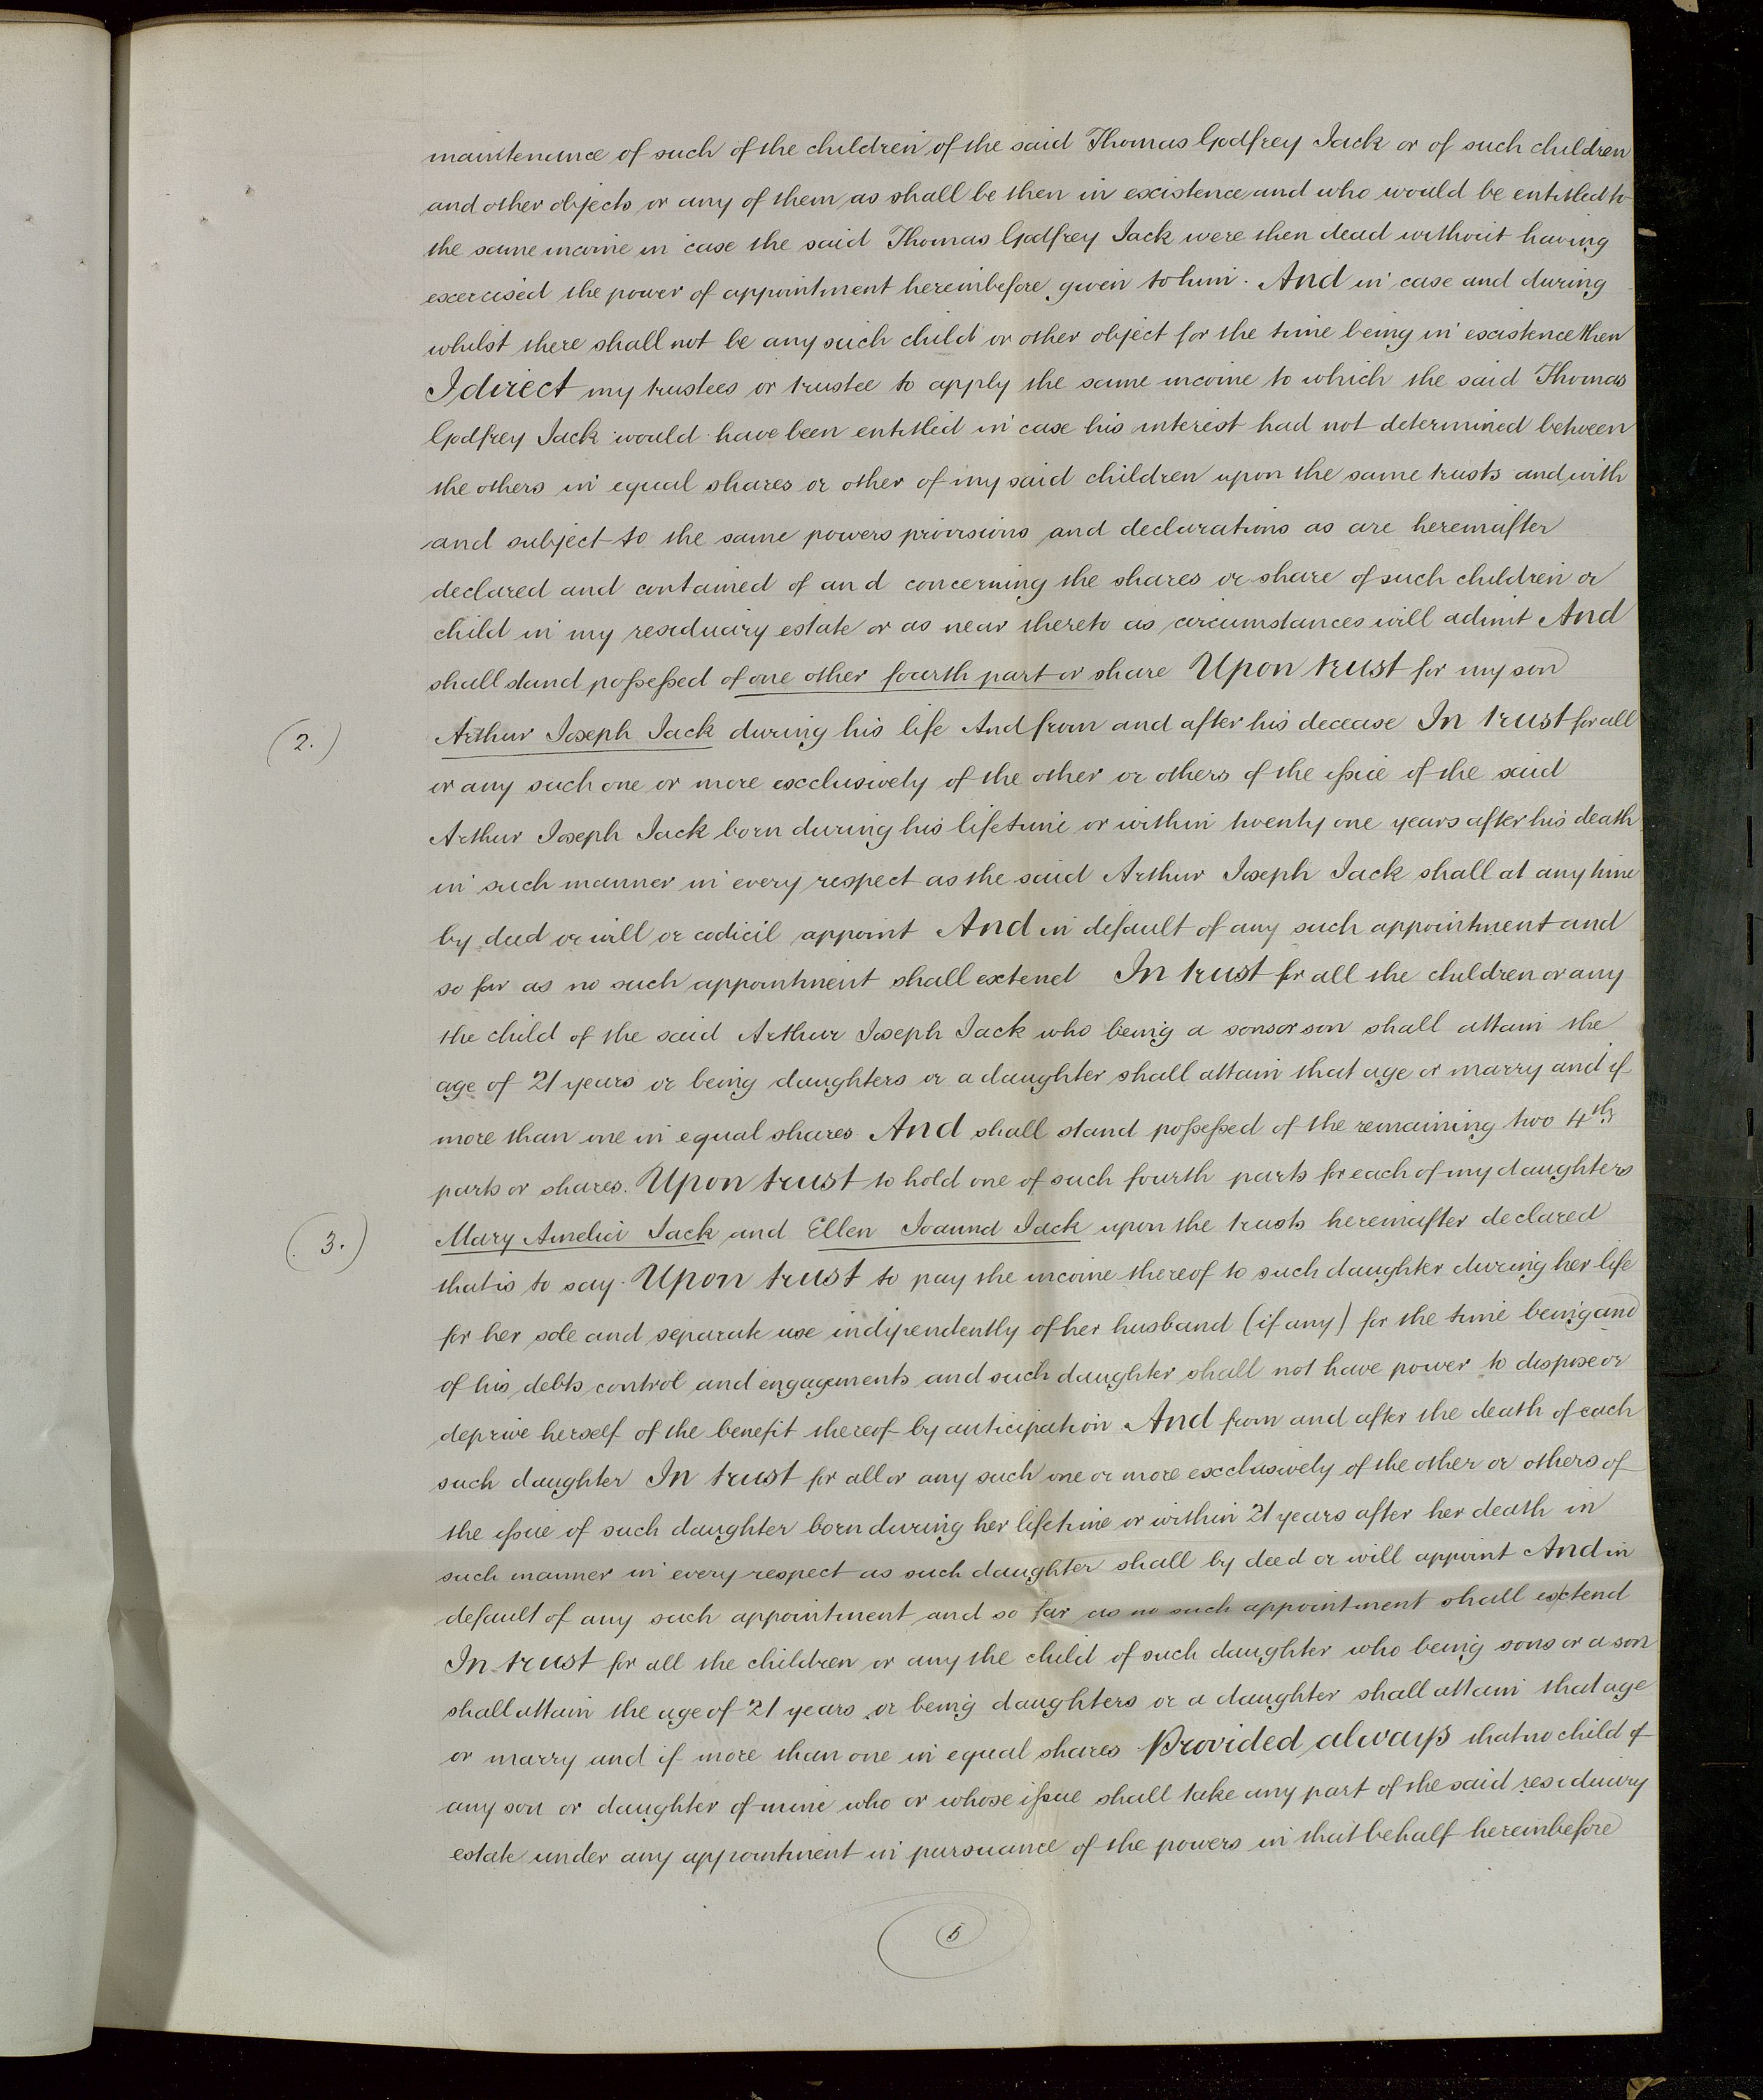 maintenance of such of the children of the said Thomas Godfrey Jack or of such children
and other objects or any of them as shall be then in existence and who would be entitled to
the same income in case the said Thomas Godfrey Jack were then dead without having
exercised the power of appointment hereinbefore given to him. And in case and during
whilst there shall not be any such child or other object for the time being in existence then
I direct my trustees or trustee to apply the same income to which the said Thomas
Godfrey Jack would have been entitled in case his interest had not determined between
the others in equal shares or other of my said children upon the same trusts and with
and subject to the same powers provisions and declarations as are hereinafter
declared and contained of and concerning the shares or share of such children or
child in my residuary estate or as near thereto as circumstances will admit And
shall stand possessed of one other fourth part or share Upon trust for my son
(2.) Arthur Joseph Jack during his life And from and after his decease In trust for all
or any such one or more exclusively of the other or others of the issue of the said
Arthur Joseph Jack born during his lifetime or within twenty one years after his death
in such manner in every respect as the said Arthur Joseph Jack shall at any time
by deed or will or codicil appoint And in default of any such appointment and
so far as no such appointment shall extend In trust for all the children or any
the child of the said Arthur Joseph Jack who being a sons or son shall attain the
age of 21 years or being daughters or a daughter shall attain that age or marry and if
more than one in equal shares And shall stand possessed of the remaining two 4ths
parts or shares. Upon trust to hold one of such fourth parts for each of my daughters
(3.) Mary Amelia Jack and Ellen Joanna Jack upon the trusts hereinafter declared
that is to say. Upon trust to pay the income thereof to such daughter during her life
for her sole and separate use independently of her husband (if any) for the time being and
of his debts control and engagements and such daughter shall not have power to dispose or
deprive herself of the benefit thereof by anticipation And from and after the death of each
such daughter In trust for all or any such one or more exclusively of the other or others of
the issue of such daughter born during her lifetime or within 21 years after her death in
such manner in every respect as such daughter shall by deed or will appoint And in
default of any such appointment and so far as no such appointment shall extend
In trust for all the children or any the child of such daughter who being sons or a son
shall attain the age of 21 years or being daughters or a daughter shall attain that age
or marry and if more than one in equal shares Provided always that no child of
any son or daughter of mine who or whose issue shall take any part of the said residuary
estate under any appointment in pursuance of the powers in that behalf hereinbefore